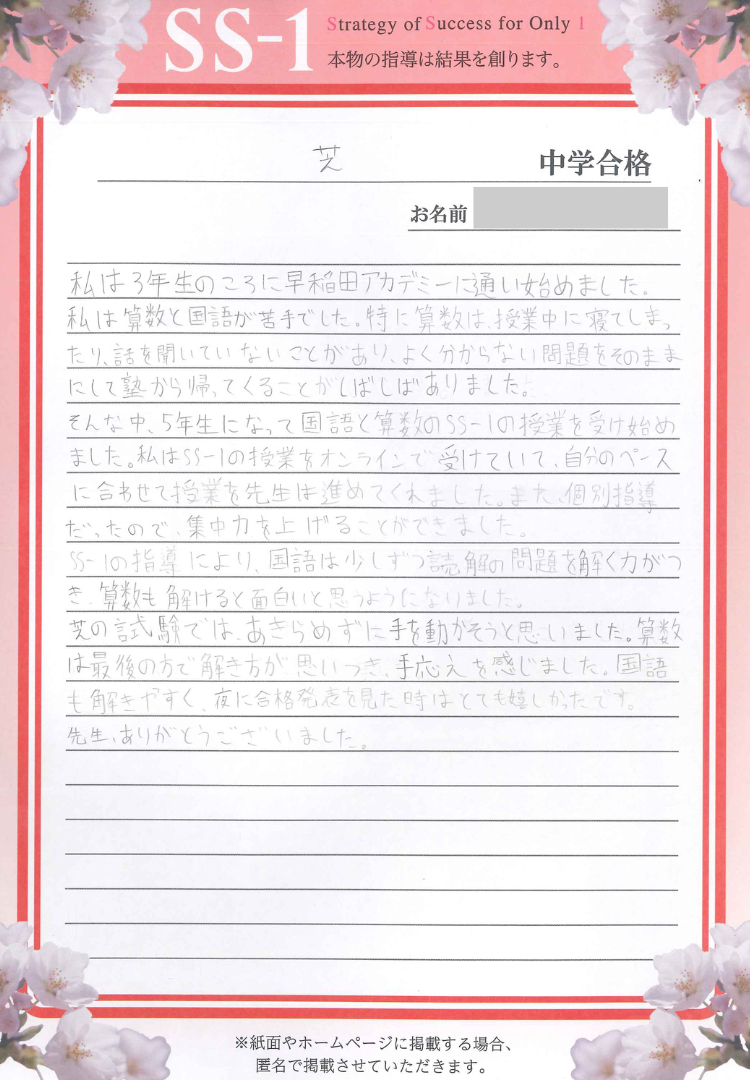 SS-1
Strategy of Success for Only 1
本物の指導は結果を創ります。
芝
中学合格
お名前
私は3年生のころに早稲田アカデミーに通い始めました。
私は算数と国語が苦手でした。特に算数は、授業中に寝てしまっ
たり、話を聞いていないことがあり、よく分からない問題をそのまま
にして塾から帰ってくることがしばしばありました。
そんな中、5年生になって国語と算数のSS-1の授業を受け始め
ました。私はSS-1の授業をオンラインで受けていて、自分のペース
に合わせて授業を先生は進めてくれました。また、個別指導
だったので、集中力を上げることができました。
SS-1の指導により、国語は少しずつ読解の問題を解く力がつ
き、算数も解けると面白いと思うようになりました。
芝の試験では、あきらめずに手を動かそうと思いました。算数
は最後の方で解き方が思いつき、手応えを感じました。国語
も解きやすく、夜に合格発表を見た時はとても嬉しかったです。
先生、ありがとうございました。
※紙面やホームページに掲載する場合、
匿名で掲載させていただきます。